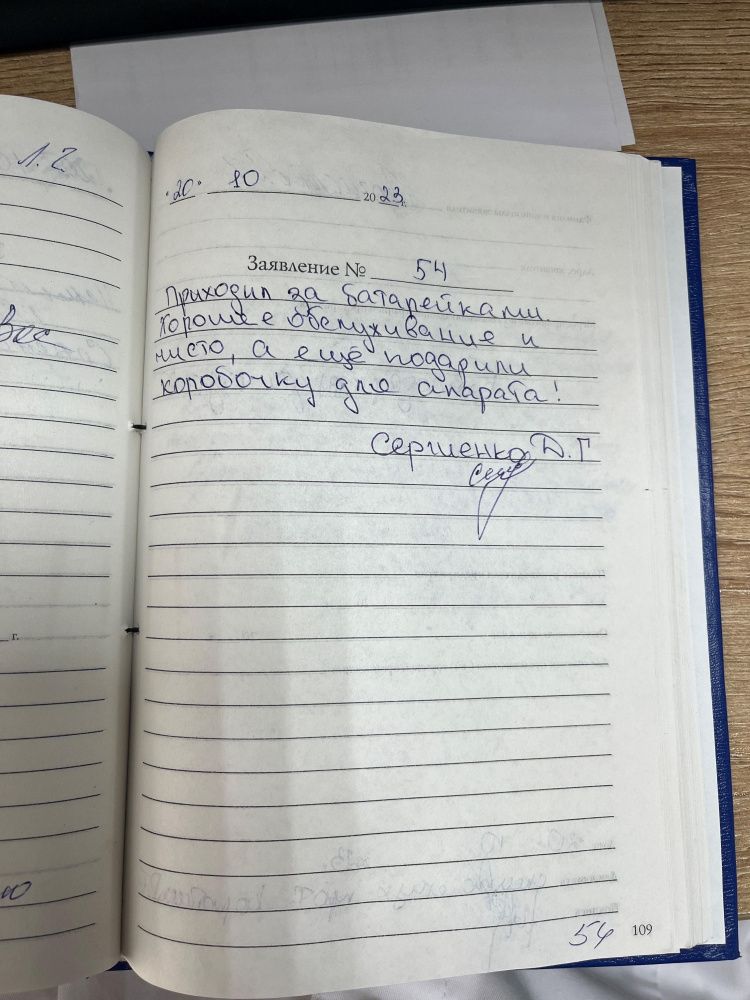 Л. Г.
"20" 10 2023 г.
Заявление № 54
Приходил за батарейками.
Хорошее обслуживание и
чисто, а ещё подарили
коробочку для апарата!
Сергиенко Д. Г
Вас
г.
54 109